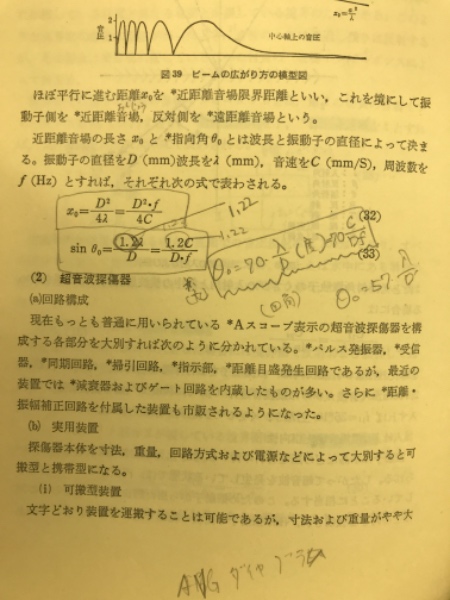 x₀=a²/λ
音圧
2
1
中心軸上の音圧
図39 ビームの広がり方の模型図
ほぼ平行に進む距離x₀を *近距離音場限界距離といい，これを境にして振
動子側を *近距離音場，反対側を *遠距離音場という。
近距離音場の長さ x₀ と *指向角θ₀ とは波長と振動子の直径によって決ま
る。振動子の直径をD (mm)波長をλ (mm)，音速をC (mm/S)，周波数を
f (Hz) とすれば，それぞれ次の式で表わされる。
x₀=D²/4λ=D²·f/4C (32)
1.22
sin θ₀=1.2λ/D=1.2C/D·f (33)
1.22
θ₀=70·λ/D(度)=70 C/Df
θ₀=57 λ/D
(2) 超音波探傷器
(a)回路構成
現在もっとも普通に用いられている *Aスコープ表示の超音波探傷器を構
成する各部分を大別すれば次のように分かれている。*パルス発振器，*受信
器，*同期回路，*掃引回路，*指示部，*距離目盛発生回路であるが，最近の
装置では *減衰器およびゲート回路を内蔵したものが多い。さらに *距離・
振幅補正回路を付属した装置も市販されるようになった。
(b) 実用装置
探傷器本体を寸法，重量，回路方式および電源などによって大別すると可
搬型と携帯型になる。
(i) 可搬型装置
文字どおり装置を運搬することは可能であるが，寸法および重量がやや大
ダイヤグラム